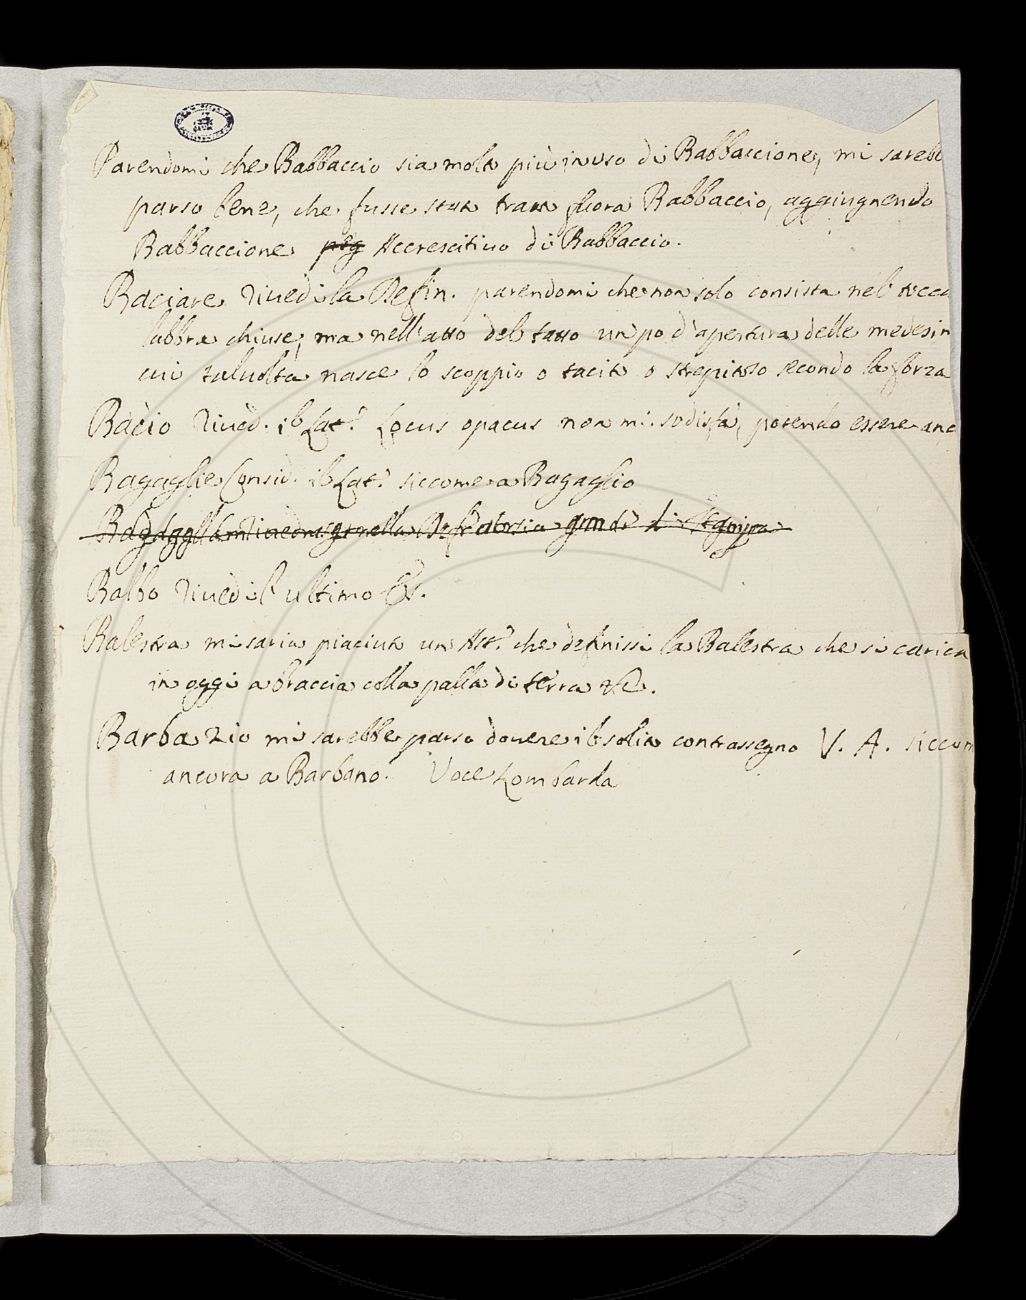 Parendomi che Babbaccio sia molto più in uso di Babbaccione, mi sarebb
parso bene, che fusse stato tratto fuora Babbaccio, aggiugnendo
Babbaccione Accrescitivo di Babbaccio.
Baciare rived. la Defin. parendomi che non solo consista nel tocca
labbra chiuse, ma nell'atto del tatto un po d'apertura delle medesim
cui talvolta nasce lo scoppio o tacito o strepitoso secondo la forza
Bacìo rived. il Lat.º Locus opacus non mi sodisfà, potendo essere anc
Bagaglie Consid. il Lat.º siccome a Bagaglio
Balbo rived. l'ultimo Es.
Balestra mi saria piaciuto un Att.º che definissi la Balestra che si carica
in oggi a braccia colla palla di terra &c.
Barba Zio mi sarebbe parso dovere il solito contrassegno V. A. siccom
ancora a Barbano. Voce Lombarda